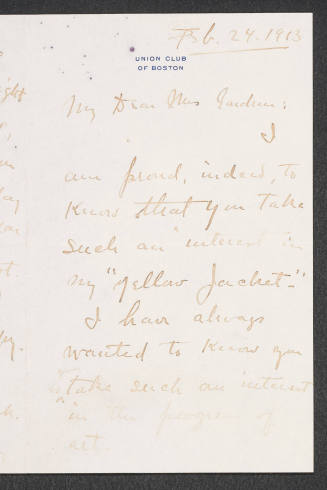 Feb. 24. 1913
UNION CLUB
OF BOSTON
My Dear Mrs Gardner:
I
am proud, indeed, to
know that you take
such an interest in
my "Yellow Jacket"
I have always
wanted to know you
take such an interest
in the progress of
art.